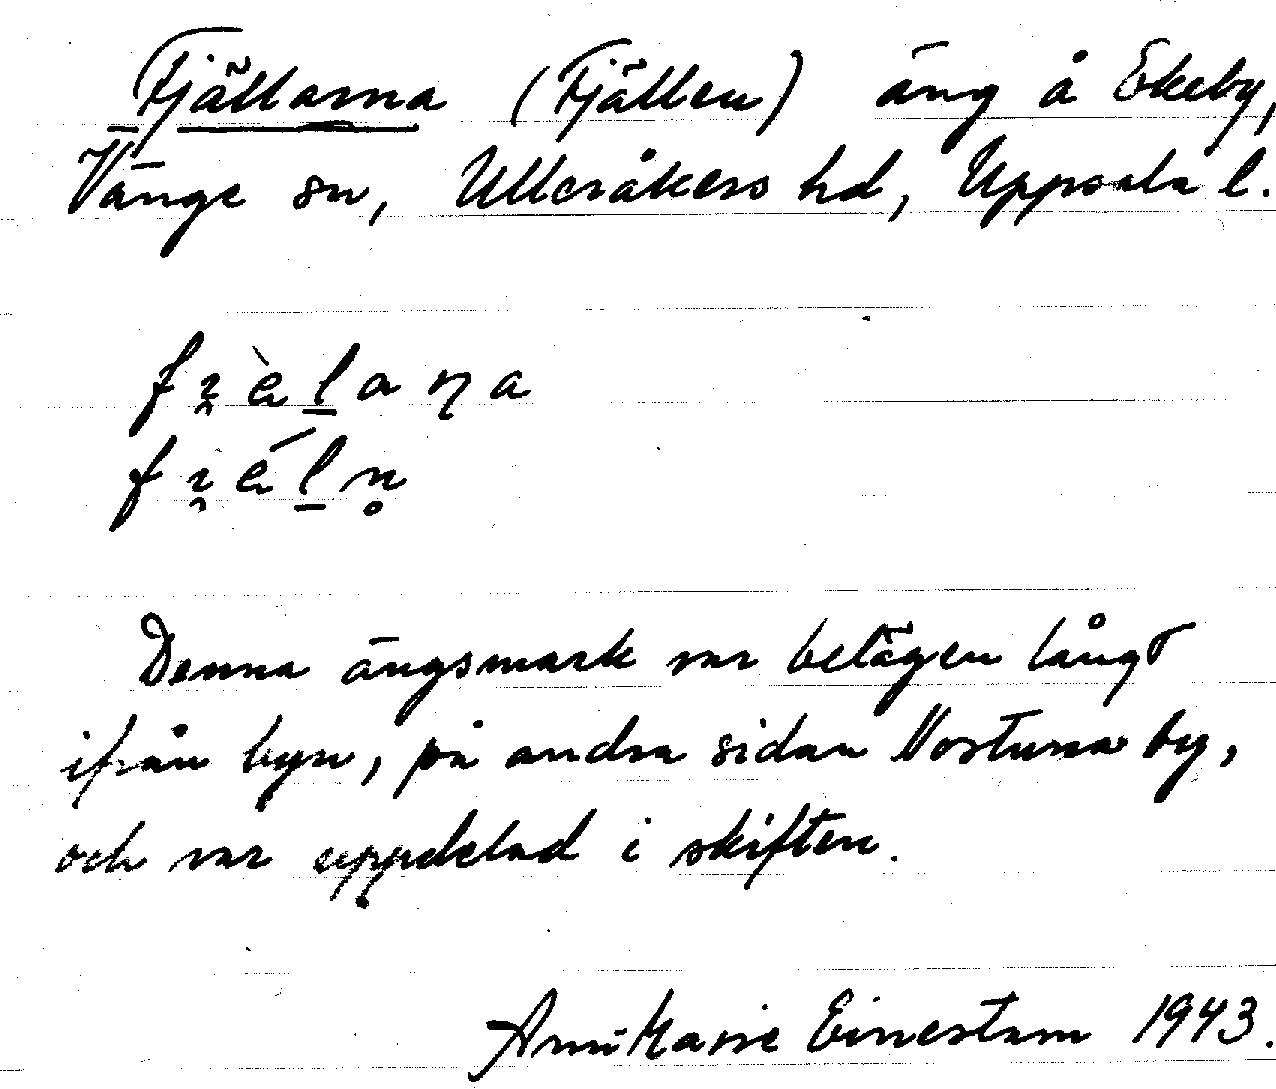 Fjällarna (Fjällen) äng å Ekeby,
Vänge sn, Ulleråkers hd, Uppsala l.
Denna ängsmark var belägen långt
ifrån byn, på andra sidan Vostuna by,
och var uppdelad i skiften.
Einestam 1943.